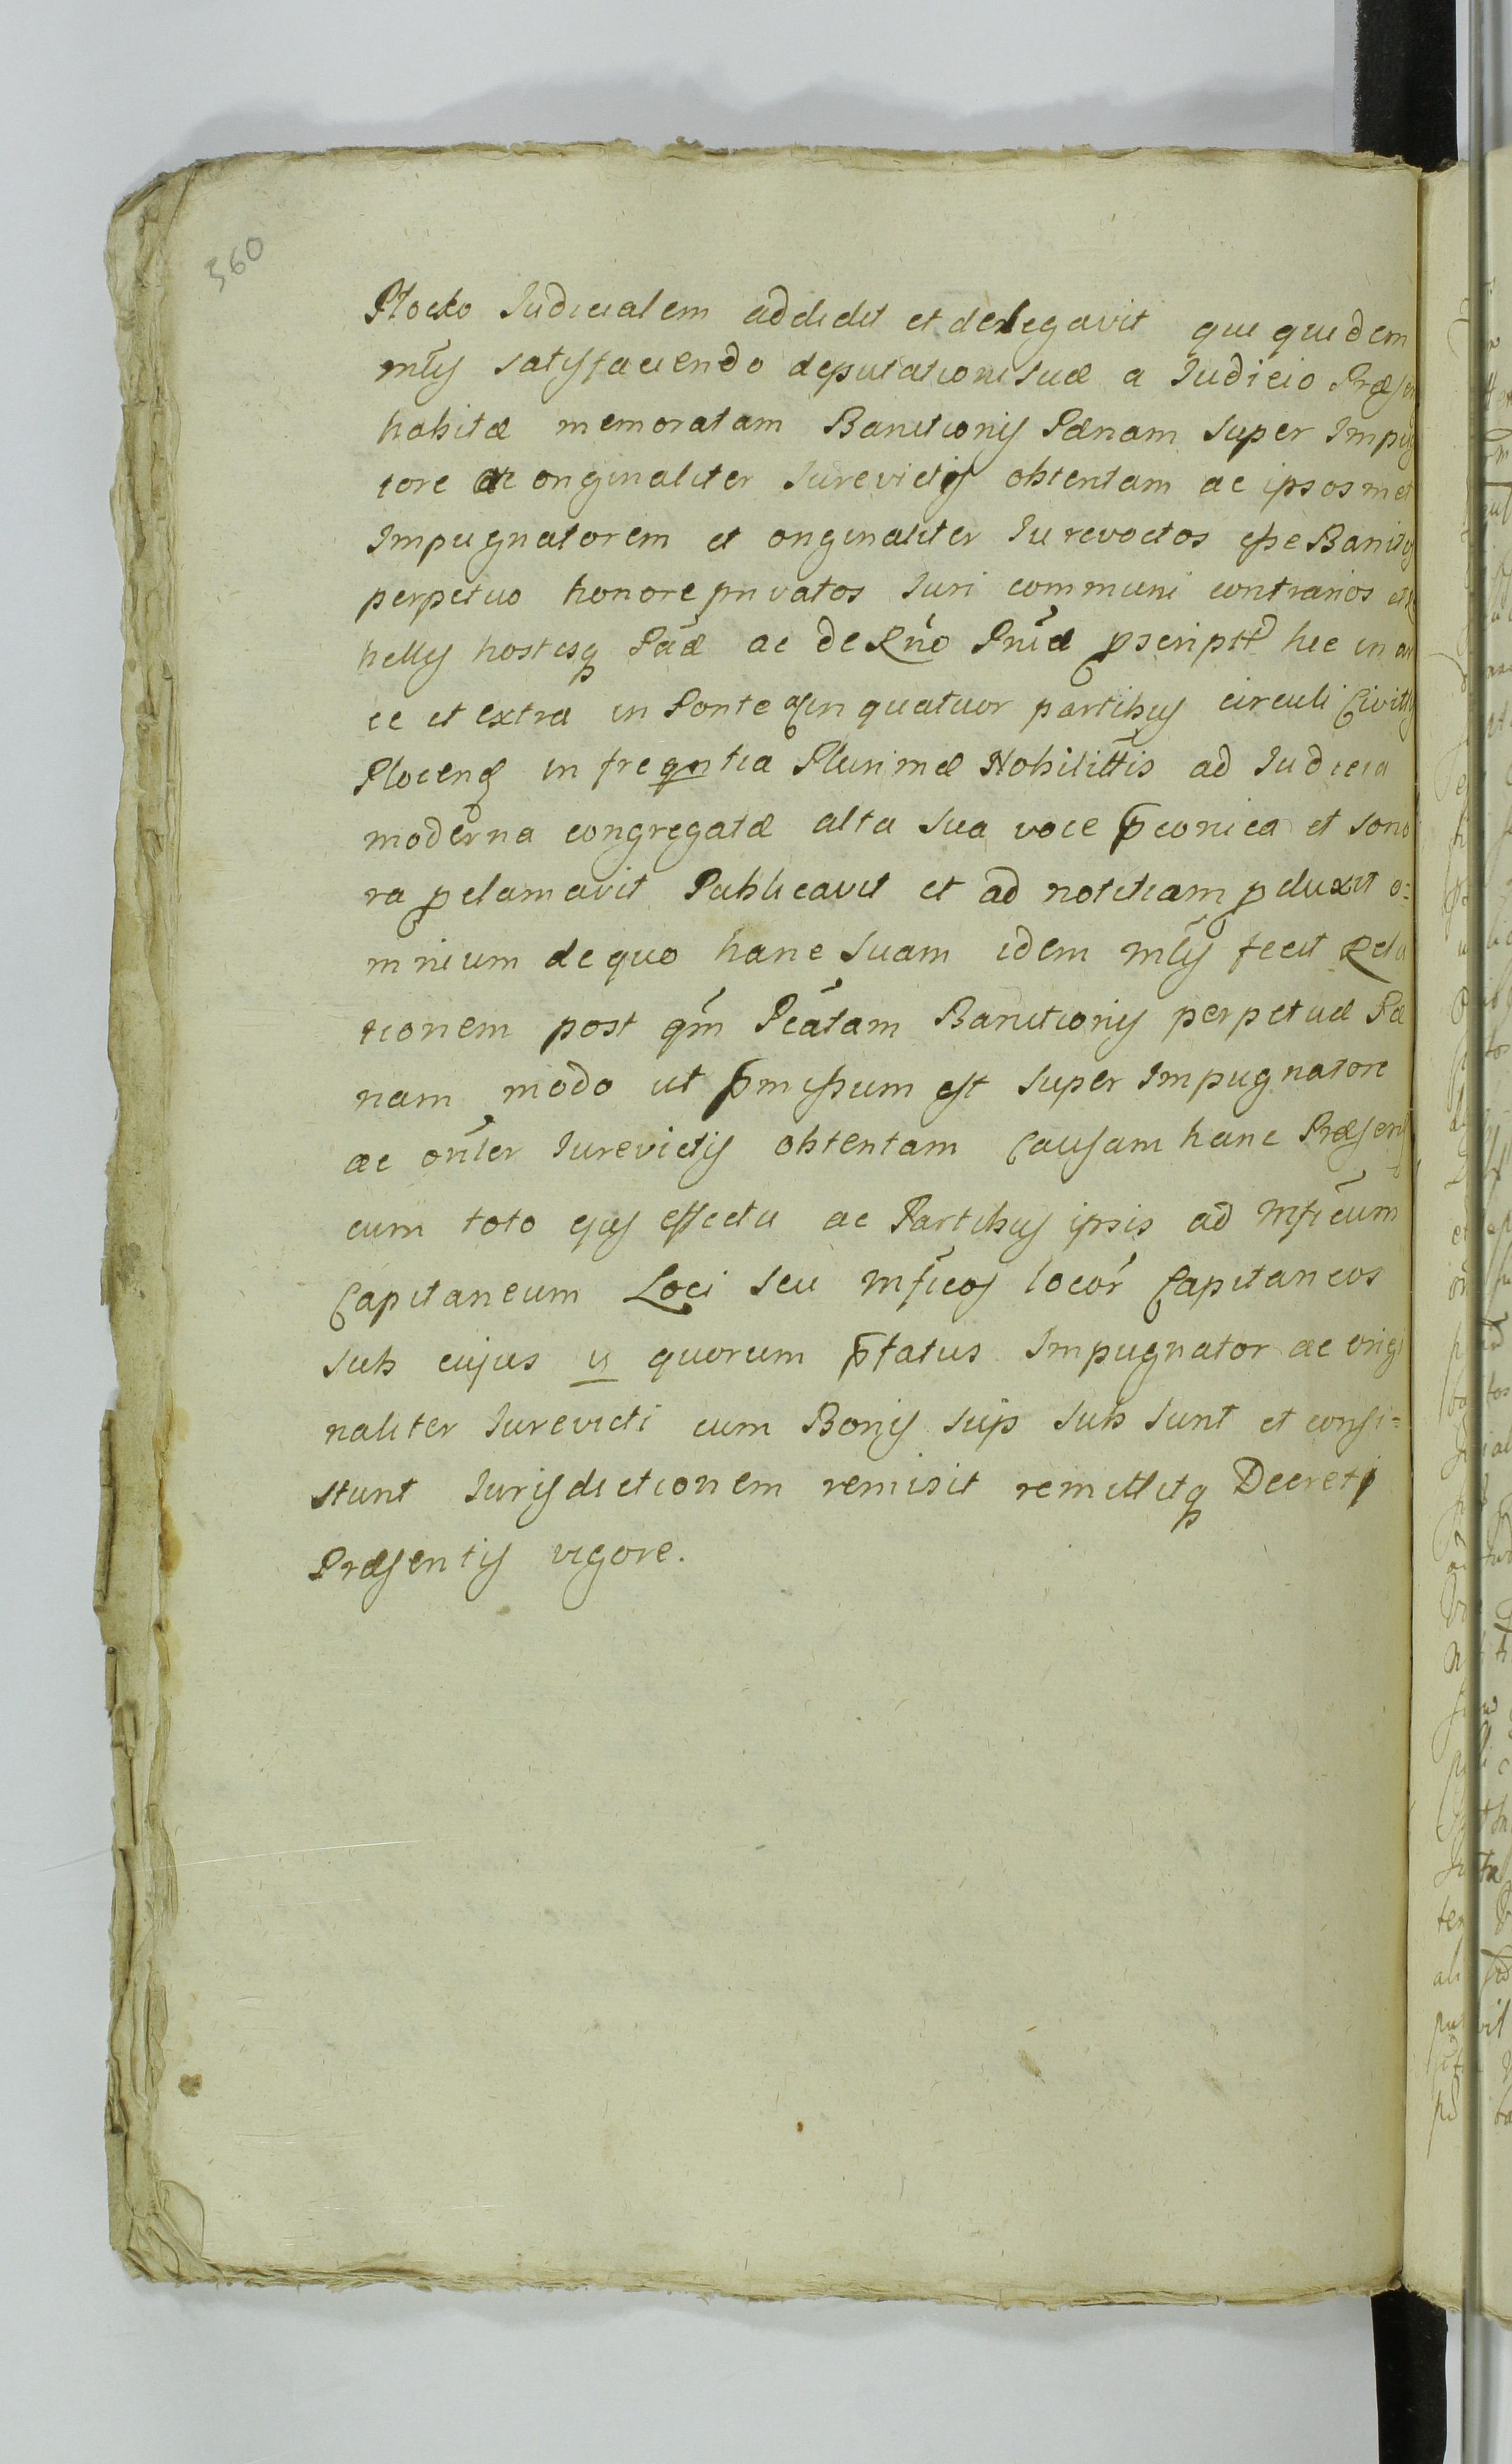 360
Płocko Judicialem addidit et delegavit qui quidem
mlis satisfaciendo deputationi suæ a Judicio Præsen
habitæ memoratam Banitionis Pænam super Impug
tore ac originaliter Jurevictis obtentam ac ipsosmet
Impugnatorem et originaliter Jurevoctos esse Banitos
perpetuo honore privatos Juri communi contrarios et
belles hostesq Pãæ ac de Rño Pruã pscriptt hic in ar
ce et extra in Ponte qsin quatuor partibus circuli Civittis
Plocens in freqntia Plurimæ Nobilittis ad Judicia
moderna congregatæ alta sua voce p̃conica et sono
ra pclamavit Publicavit et ad notitiam pduxit o=
mnium de quo hanc suam idem mlis fecit Rela
tionem post qm̃ Pcãtam Banitionis perpetuæ Pæ
nam modo ut p̃missum est super Impugnatore
ac orĩler Jurevictis obtentam Causam hanc Præsen
cum toto ejus effectu ac Partibus ipsis ad Mfĩcum
Capitaneum Loci seu Mfĩcos locor̃ Capitaneos
sub cujus v quorum p̃fatus Impugnator ac origi
naliter Jurevicti cum Bonis suis sub sunt et consi=
stunt Jurisdictionem remisit remittitq Decreti
Præsentis vigore.